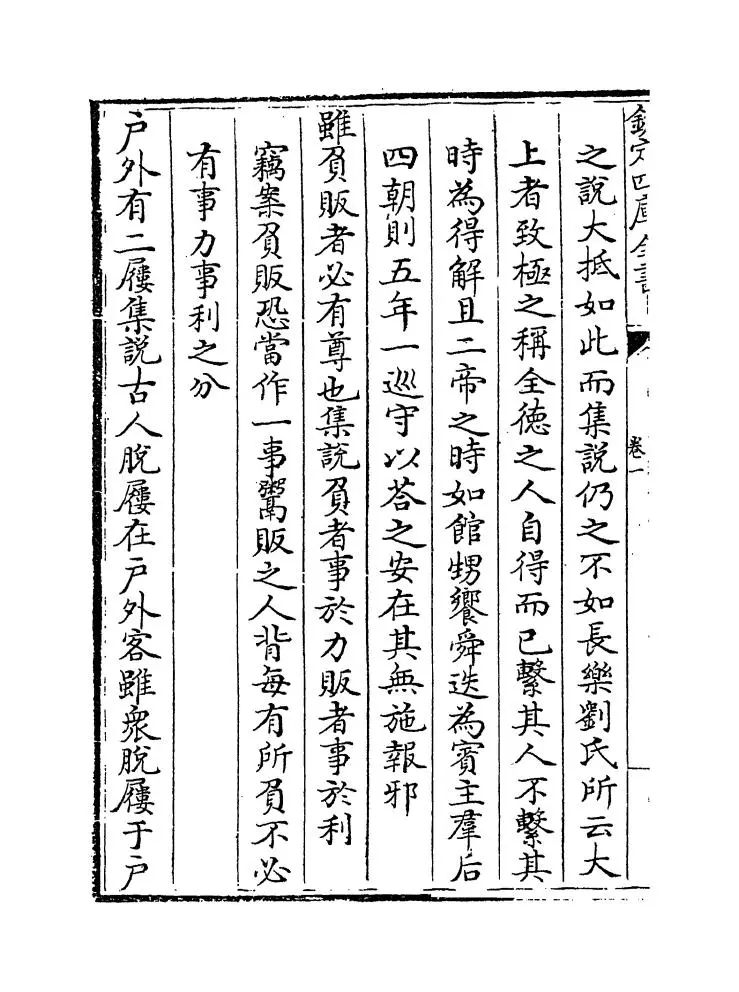 欽定四庫全書
卷一
之說大抵如此而集說仍之不如長樂劉氏所云大
上者致極之稱全德之人自得而已繫其人不繫其
時為得解且二帝之時如館甥饗舜迭為賓主羣后
四朝則五年一巡守以荅之安在其無施報邪
雖負販者必有尊也集說負者事於力販者事於利
竊案負販恐當作一事鬻販之人背每有所負不必
有事力事利之分
戶外有二屨集說古人脫屨在戶外客雖衆脫屨于戶